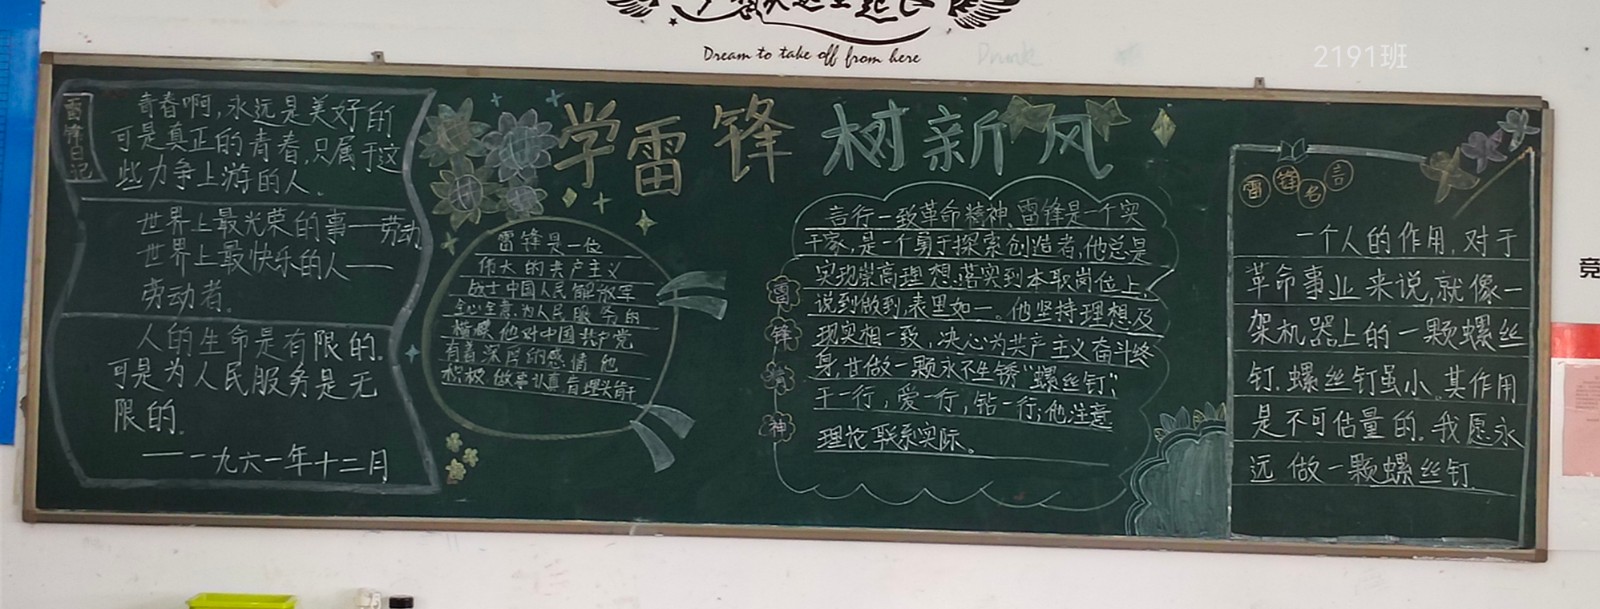 Dream to take off from here
2191班
学雷锋 树新风
雷锋日记
青春啊,永远是美好的
可是真正的青春,只属于这
些力争上游的人。
世界上最光荣的事——劳动
世界上最快乐的人——
劳动者。
人的生命是有限的.
可是为人民服务是无
限的.
——一九六一年十二月
雷锋是一位
伟大的共产主义
战士中国人民解放军
全心全意为人民服务的
楷模他对中国共产党
有着深厚的感情他
积极做事认真肯埋头苦干
雷锋精神
言行一致革命精神、雷锋是一个实
干家,是一个勇于探索创造者,他总是
实现崇高理想.落实到本职岗位上,
说到做到,表里如一。他坚持理想及
现实相一致,决心为共产主义奋斗终
身,甘做一颗永不生锈“螺丝钉”;
干一行,爱一行,钻一行;他注意
理论联系实际。
雷锋名言
一个人的作用,对于
革命事业来说,就像一
架机器上的一颗螺丝
钉.螺丝钉虽小.其作用
是不可估量的.我愿永
远做一颗螺丝钉.